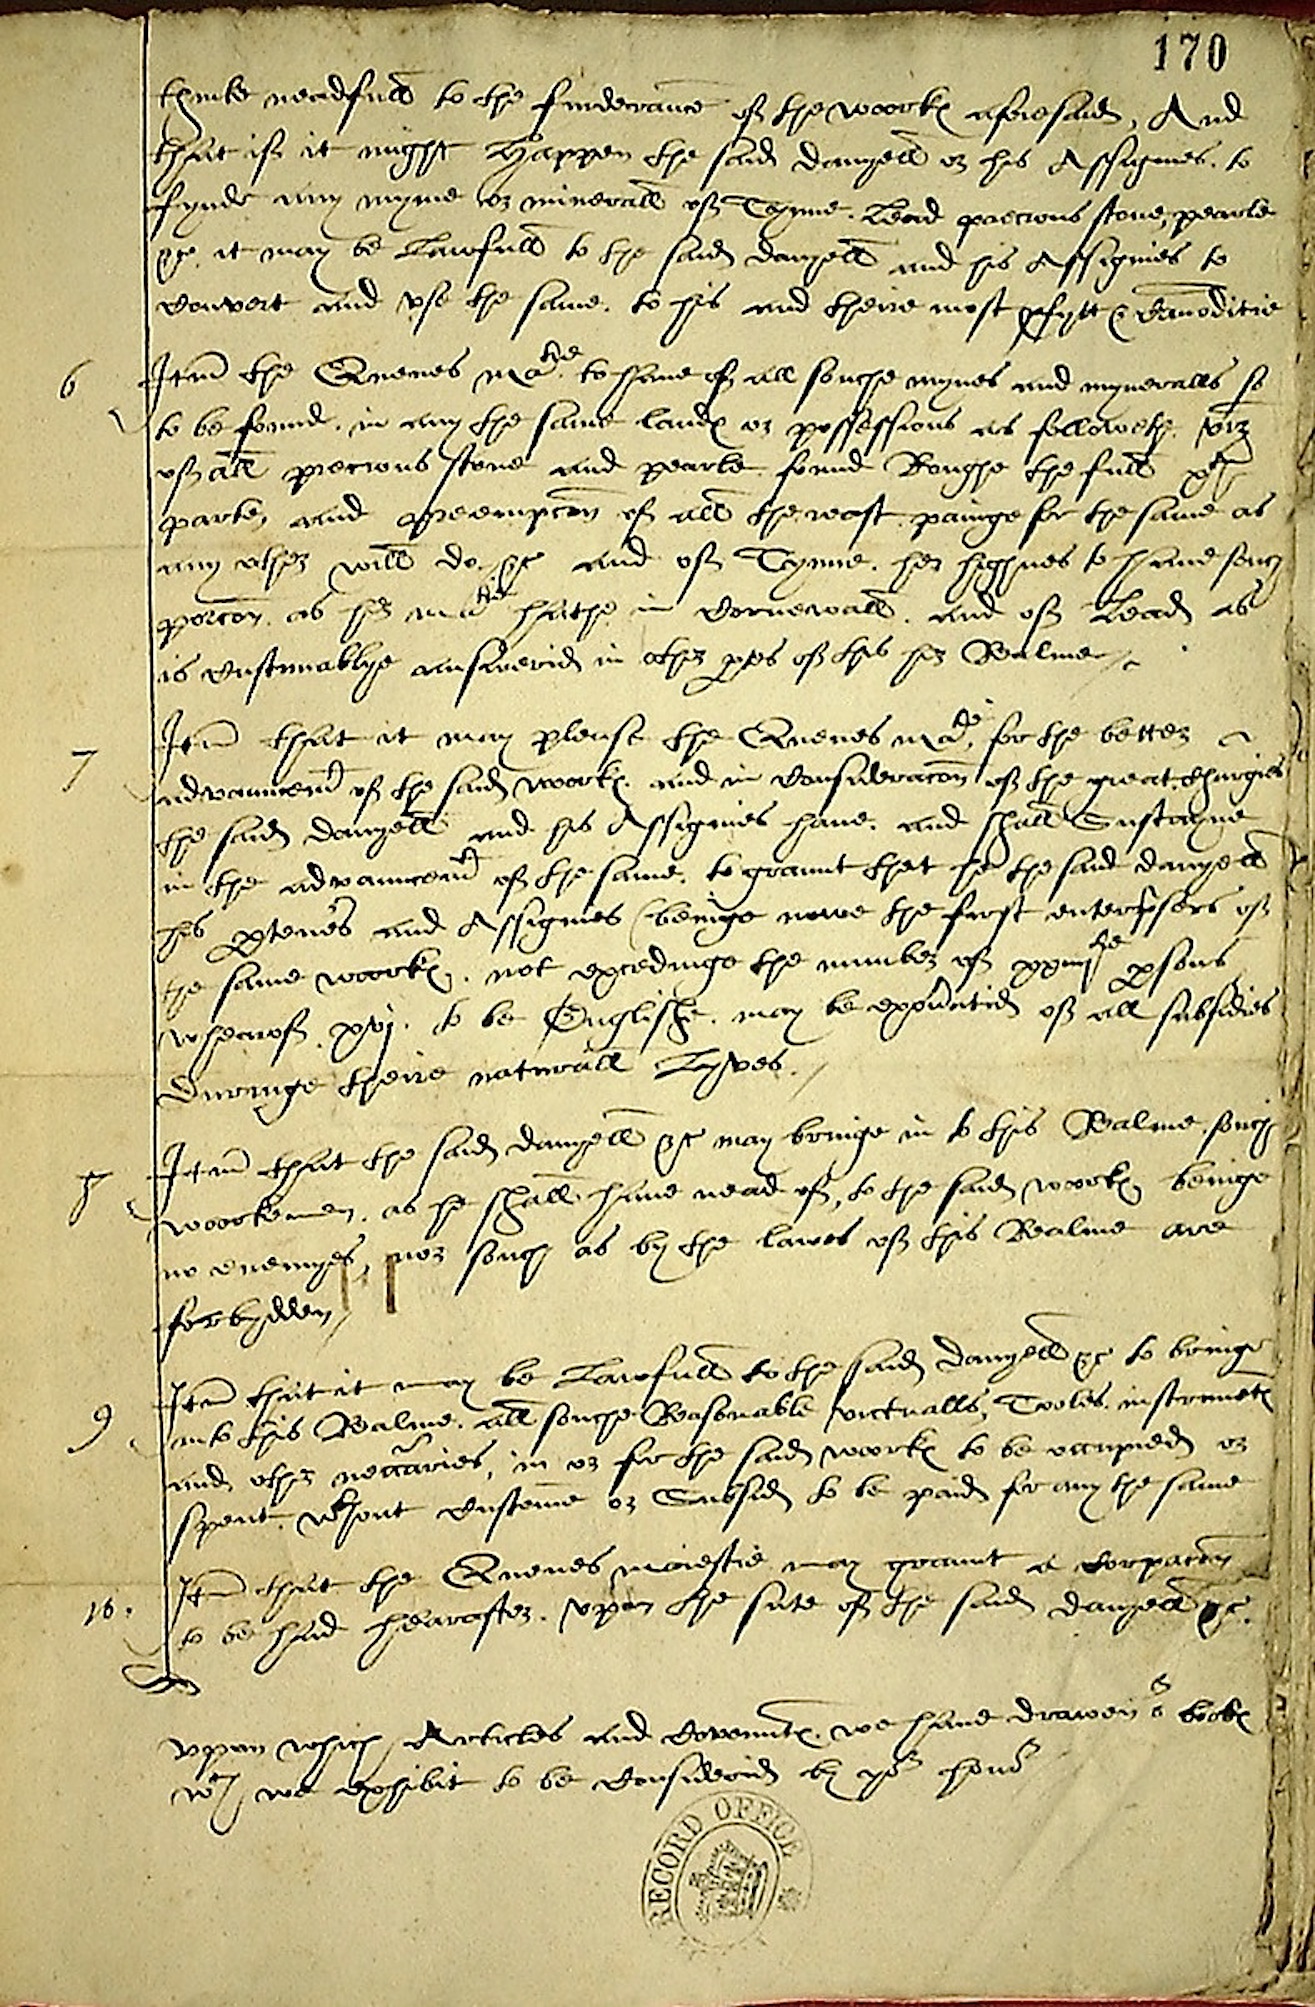 170
thinke neadfull to the finderance of the woork aforesaid, And
that if it might Happen the said danyell or his Assignes. to
fynde any myne or minerall of Tynne. Lead precious stone, pearle
&c. it may be Lawfull to the said danyell and his Assignies to
convert and vse the same. to his and theire most profytt & comoditie
6 Itm the Quenes Matie to haue of all souche mynes and mynoralls so
to be found. in any the same landes or possessions as followeth. viz
of all precious stone and pearle found Roughe the full xth
parte, and preempcon of all the reast painge for the same as
any other will do. &c and of Tynne. her highnes to haue such
porcon. as her Matie hathe in Cornewall. and of Lead as
is customablye answerid in other ptes of this her Realme
7 Itm that it may please the Quenes Matie, for the better
advauncemt of the said work. and in consideracon of the great chargies
the said danyell and his Assignies haue. and shall Sustayne
in the advauncemt of the same. to graunt that he the said danyell
his pteners and Assignies (beinge nowe the first enterprisers of
the same woork. not excedinge the number of xxiiijtie psons
wherof. xvj. to be Englishe. may be exonnerid of all subsidies
Duringe theire naturall Lyves.
8 Itm that the said danyell &c may bringe in to this Realme. such
woorkemen. as he shall haue nead of, to the said work, beinge
no enemyes, nor such as by the lawes of this Realme are
forbydden
9 Itm that it may be Lawfull to the said danyell &c to bringe
into this Realme. all souche Reasonable victualls, Tooles. instrumetes
and other neccaries, in or for the said woork to be occupied or
spent. wthout custome or Subsid to be paid for any the same
10. Itm that the Quenes Maiestie may graunt a Corpacon
to be had hearafter. vpon the sute of the said danyell &c.
vpon which Articles and Covenntes. we haue drawen a book
wch we exhibit to be considerid by yor honor
RECORD OFFICE